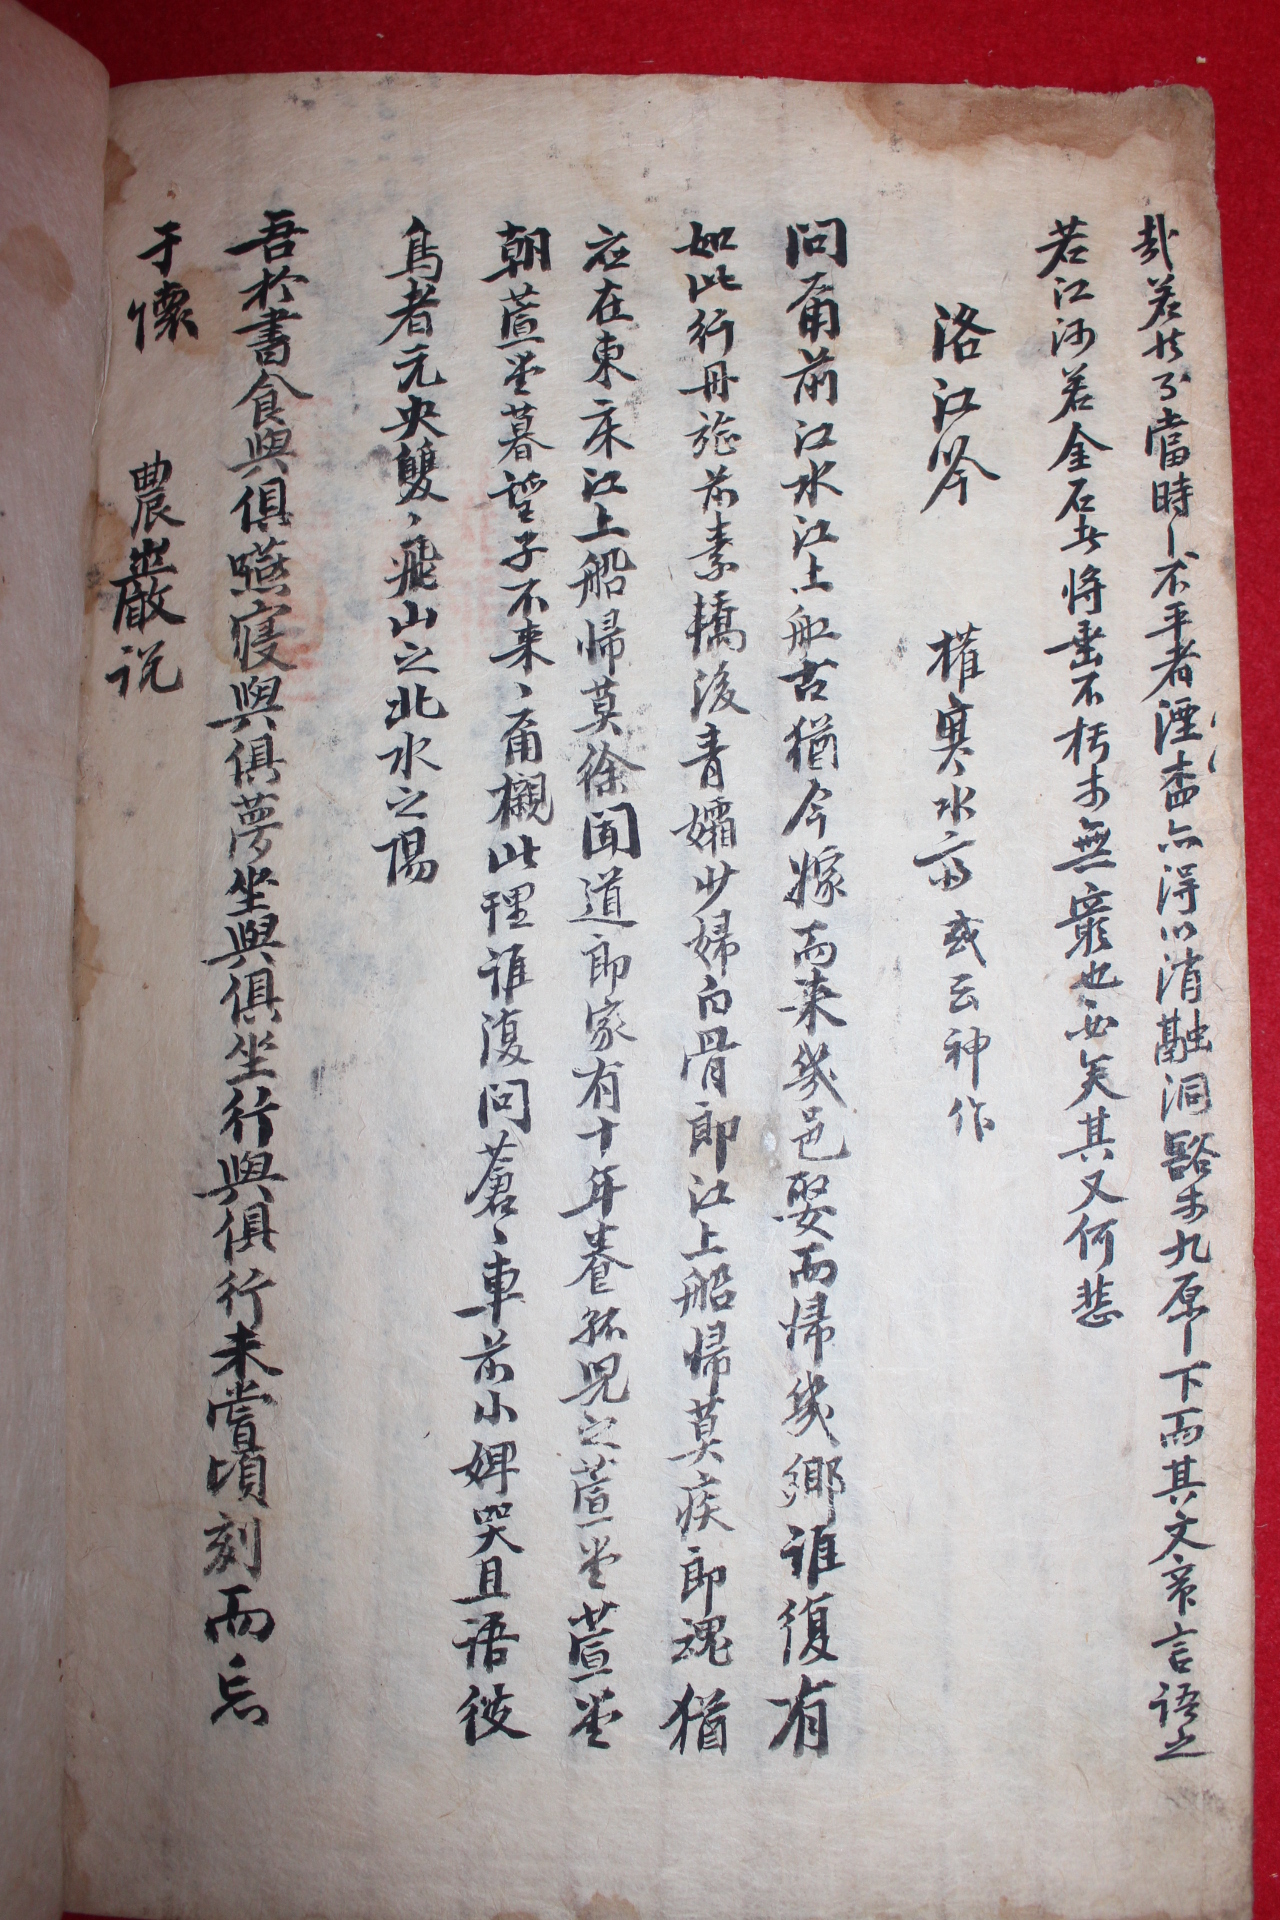 哉若此又當時之不平者湮盡亦得以消融洞豁於九原之下而其文章言語之
若江河若金石者將垂不朽於無窮也必矣其又何悲
洛江吟 權寒水齋或云神作
問爾前江水江上船古猶今嫁而來幾邑娶而歸幾鄉誰復有
如此行丹旌前素轎後青孀少婦白骨郎江上船歸莫疾郎魂猶
應在東床江上船歸莫徐聞道郎家有十年養孤兒之萱堂萱堂
朝萱堂暮望子不來來爾櫬此理誰復問蒼蒼車前小婢哭且語彼
鳥者元央雙ヽ飛山之北水之陽
吾於書食與俱嚥寢與俱夢坐與俱坐行與俱行未嘗頃刻而忘
于懷 農巖説